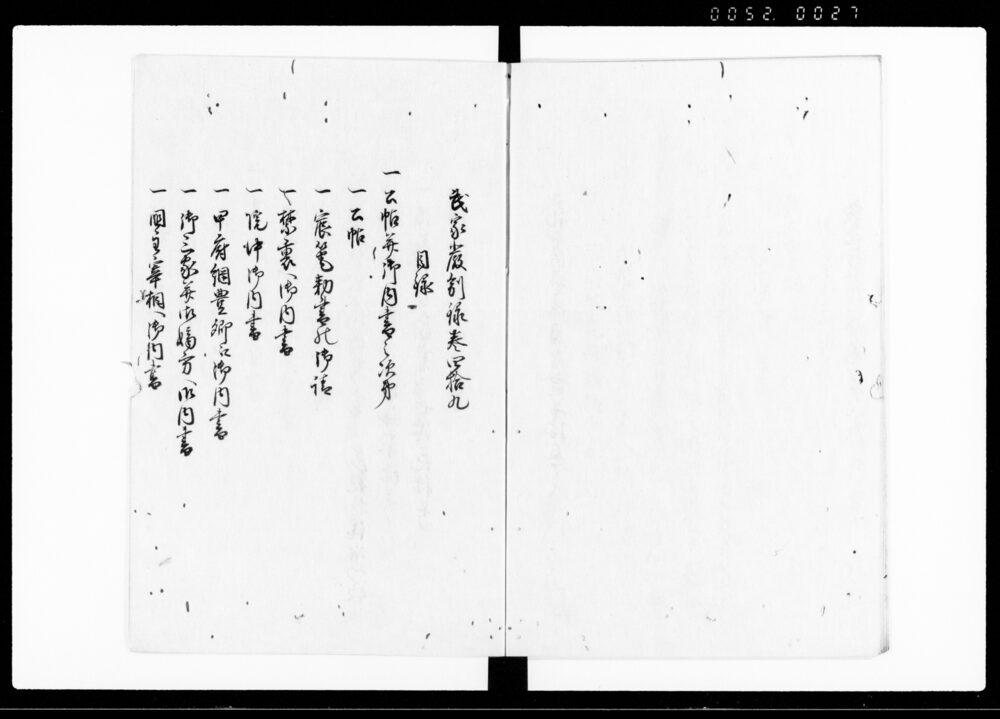 0052. 0027
武家嚴制録巻四拾九
目録
一 公帖并御内書之次第
一 公帖
一 宸筆勅書之御請
一 禁裏へ御内書
一 院中御内書
一 甲府綱豊卿江御内書
一 御三家并御嫡方へ御内書
一 國主宰相へ御内書